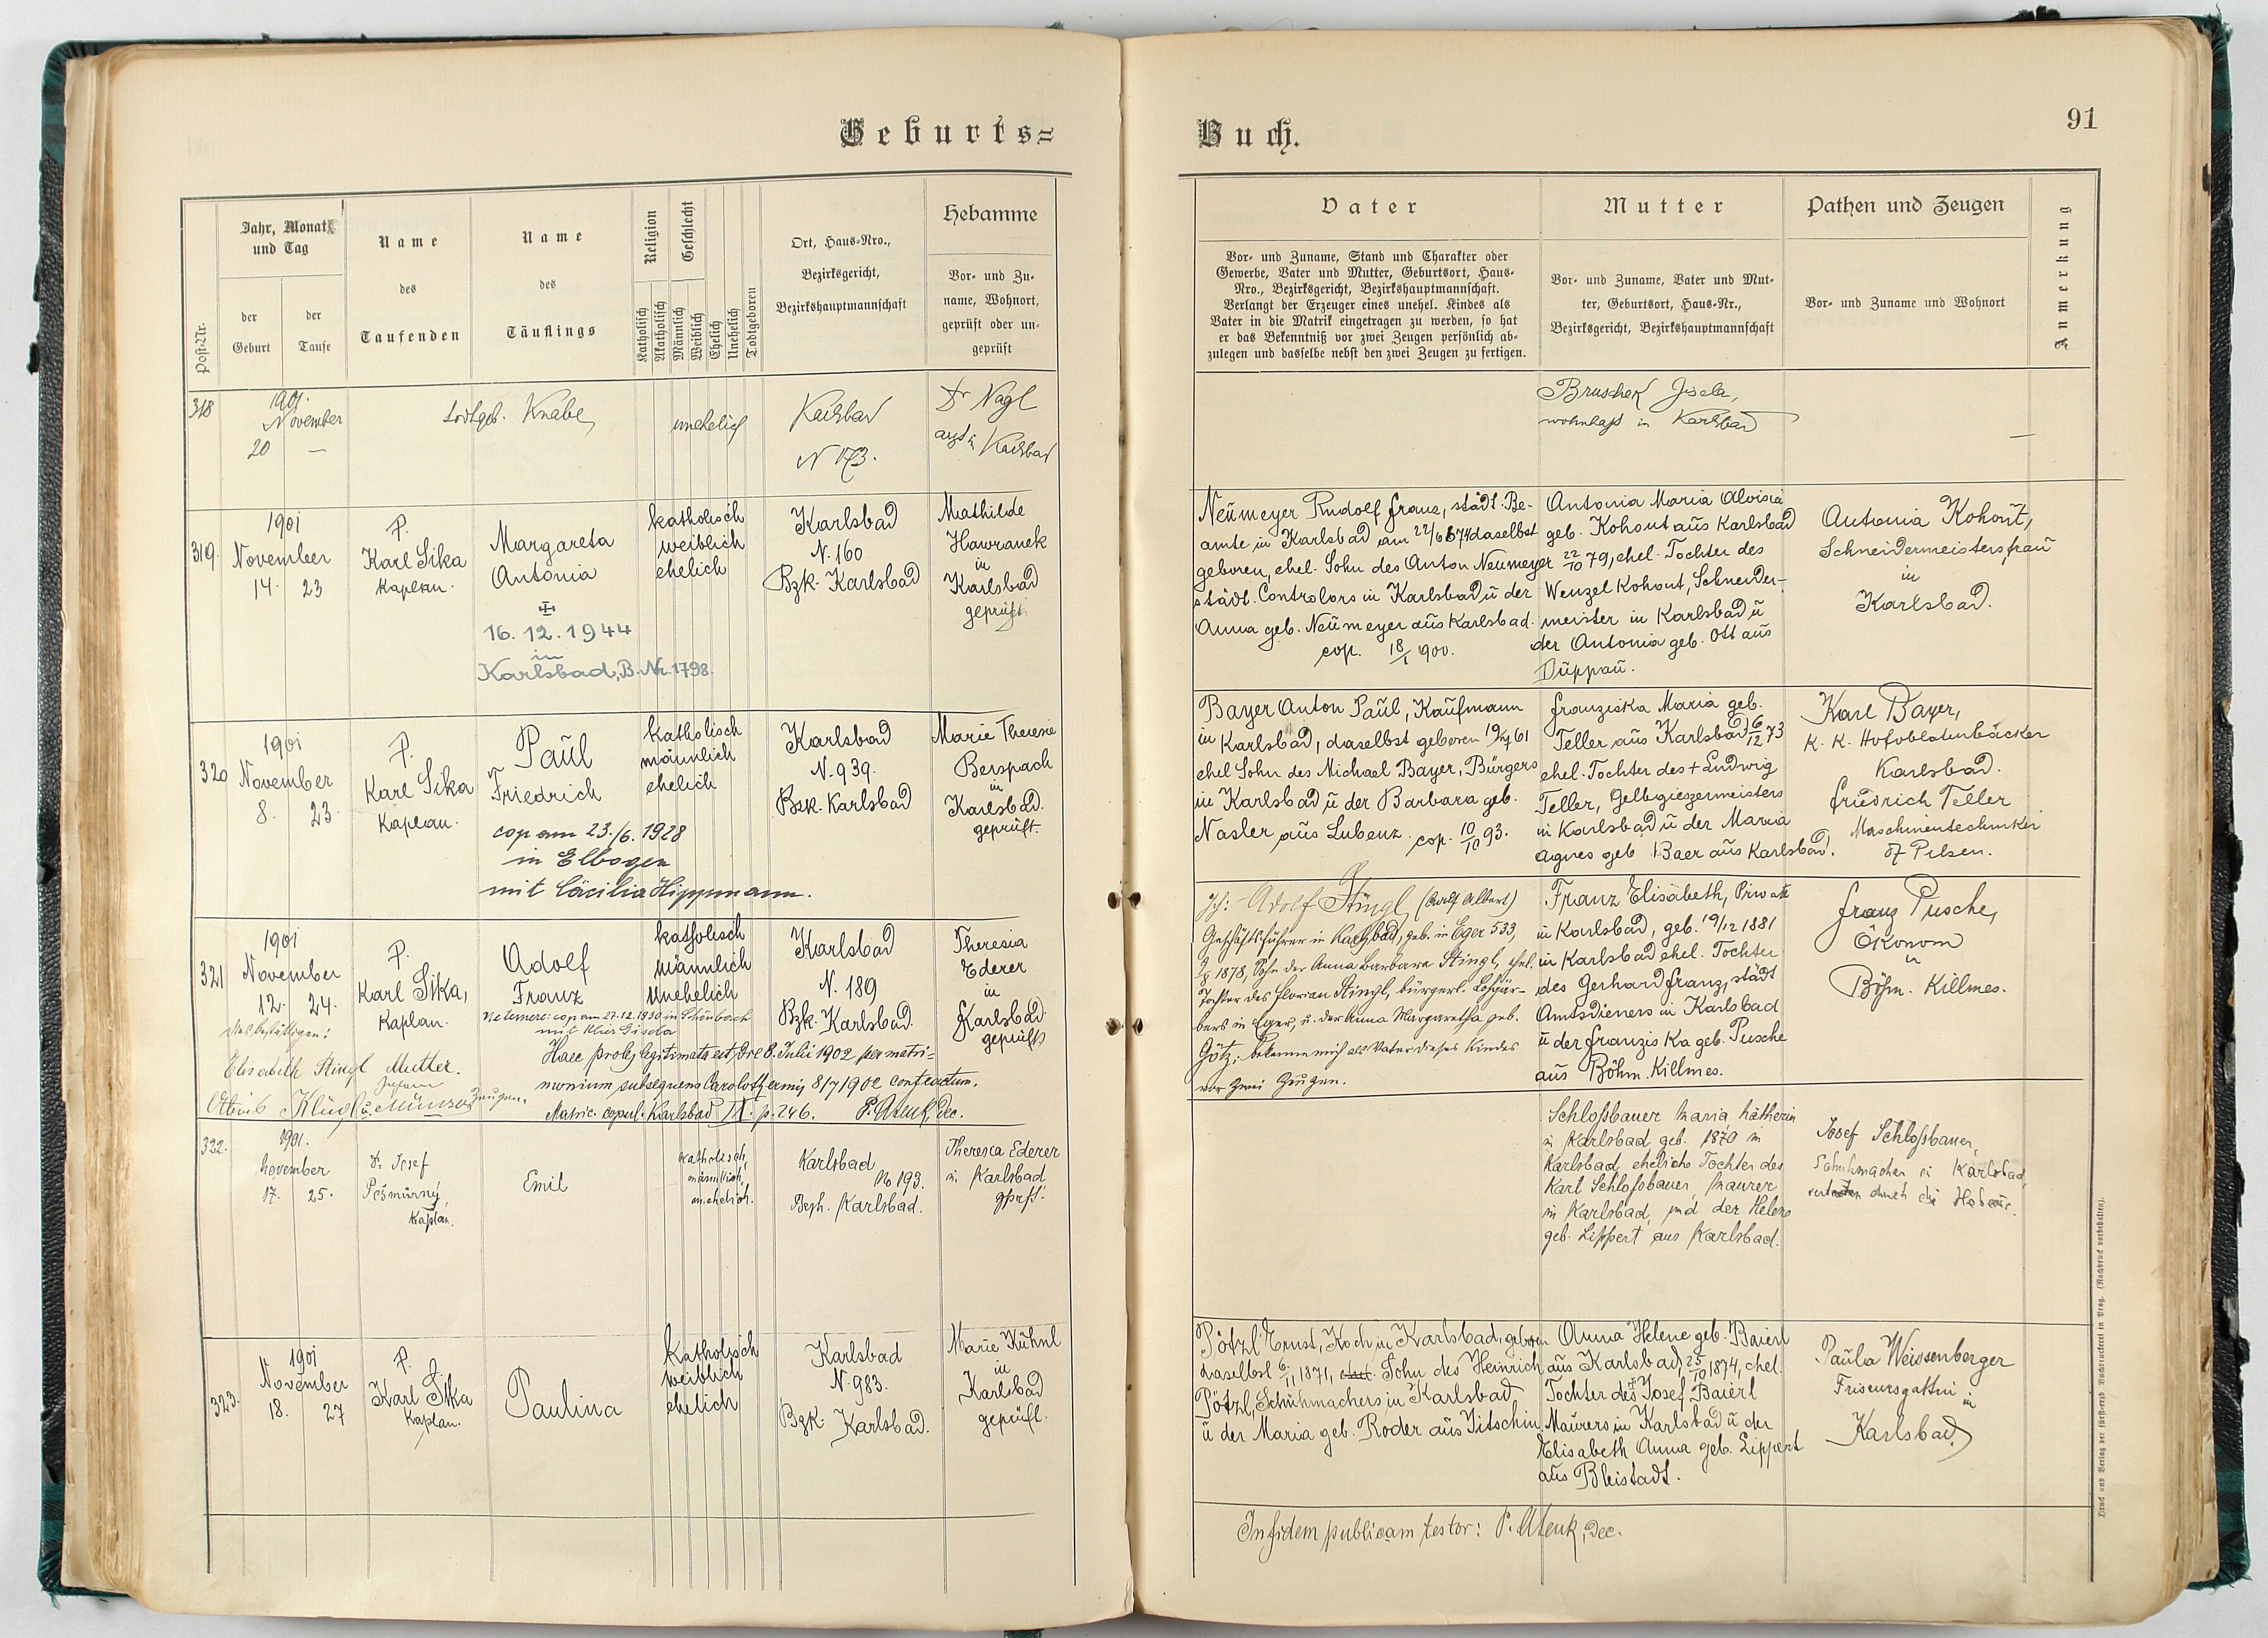 Geburts=
Buch.
91
Post-Nr.
Jahr, Monat
und Tag
der
Geburt
der
Taufe
Name
des
Taufenden
Name
des
Täuflings
Religion
Katholisch
Akatholisch
Geschlecht
Männlich
Weiblich
Ehelich
Unehelich
Todtgeboren
Ort, Haus-Nro.,
Bezirksgericht,
Bezirkshauptmannschaft
Hebamme
Vor- und Zu-
name, Wohnort,
geprüft oder un-
geprüft
Vater
Vor- und Zuname, Stand und Charakter oder
Gewerbe, Vater und Mutter, Geburtsort, Haus-
Nro., Bezirksgericht, Bezirkshauptmannschaft.
Verlangt der Erzeuger eines unehel. Kindes als
Vater in die Matrik eingetragen zu werden, so hat
er das Bekenntniß vor zwei Zeugen persönlich ab-
zulegen und dasselbe nebst den zwei Zeugen zu fertigen.
Mutter
Vor- und Zuname, Vater und Mut-
ter, Geburtsort, Haus-Nr.,
Bezirksgericht, Bezirkshauptmannschaft
Pathen und Zeugen
Vor- und Zuname und Wohnort
Anmerkung
318
1901.
November
20 —
todtgeb. Knabe
unehelich
Karlsbad
N 173.
Dr Nagl
Karlsbad
Bruschek
wohnhaft in Karlsbad
—
319.
1901
November
14. 23
P.
Karl Sika
Kaplan.
Margareta
Antonia
16. 12. 1944
in
Karlsbad, B. Nr. 1798.
katholisch
weiblich
ehelich
Karlsbad
N. 160
Bzk. Karlsbad
Mathilde
Hawranek
in
Karlsbad
geprüft
Neumeyer Rudolf Franz, städt. Be-
amte in Karlsbad am 22/6 874 daselbst
geboren, ehel. Sohn des Anton Neumeyer
städt. Controlors in Karlsbad ü der
Anna geb. Neumeyer aus Karlsbad.
cop. 18/1 900.
Antonia Maria Aloisia
geb. Kohout aus Karlsbad
22/10 79, ehel. Tochter des
Wenzel Kohout, Schneider-
meister in Karlsbad ü
der Antonia geb. Ott aus
Duppau.
Antonia Kohout,
Schneidermeistersfrau
in
Karlsbad.
320
1901
November
8. 23.
P.
Karl Sika
Kaplan.
Paul
Friedrich
cop am 23./6. 1928
in Elbogen
mit Cäcilia Hippmann.
katholisch
männlich
ehelich
Karlsbad
N. 939.
Bzk. Karlsbad
Marie Theresie
Berspach
in
Karlsbad.
geprüft.
Bayer Anton Paul, Kaufmann
in Karlsbad, daselbst geboren 61
ehel Sohn des Michael Bayer, Bürgers
in Karlsbad ü der Barbara geb.
Nasler aus Lubenz. cop. 10/10 93.
Franziska Maria geb.
Teller aus Karlsbad 6/12 73
ehel. Tochter des + Ludwig
Teller, Gelbgiessermeisters
in Karlsbad ü der Maria
Agnes geb Baer aus Karlsbad.
Karl Bayer,
K. K. Hofoblatenbäcker
Karlsbad.
Friedrich Teller
Maschinentechniker
Pilsen.
321
1901
November
12. 24.
P.
Karl Sika,
Kaplan.
Adolf
Franz
Ne temere: cop am 27.12.1930 in Schönbach
katholisch
männlich
unehelich
Karlsbad
N. 189
Bzk. Karlsbad.
Theresia
Ederer
in
Karlsbad
geprüft
Elisabeth Stingl Mutter.
Zeugen.
Haec proles legitimata est, die 8. Julii 1902 per matri-
monium subsequens Carolothermis 8/7 1902 contractum.
Matric. copul. Karlsbad IX. p. 246. P. Dec.
Ich: Adolf Stingl (Adolf Albert)
Geschäftsführer in Karlsbad, geb. in Eger 533,
1878, Sohn der Anna Barbara Stingl, ehel.
Tochter des Florian Stingl, bürgerl. Lohgär-
bers in Eger, u. der Anna Margaretha geb.
Götz; bekenne mich als Vater dieses Kindes
vor zwei Zeugen.
Franz Elisabeth, Private
in Karlsbad, geb. 19/12 1881
in Karlsbad ehel. Tochter
des Gerhard Franz, städt
Amtsdieners in Karlsbad
ü der Franziska geb. Pusche
aus Böhm. Killmes.
Franz Pusche,
Ökonom
in
Böhm. Killmes.
322.
1901.
November
17. 25.
Josef
Kaplan.
Emil
katholisch,
männlich,
unehelich.
Karlsbad
No 193.
Bzh. Karlsbad.
Theresia Ederer
in Karlsbad
Schloßbauer Maria,
in Karlsbad geb. 1870 in
Karlsbad, eheliche Tochter des
Karl Schloßbauer, Maurer
in Karlsbad, und der Helene
geb. Lippert aus Karlsbad.
Josef Schloßbauer,
Schuhmacher in Karlsbad,
vertreten durch die Hebame.
323.
1901
November
18. 27
P.
Karl Sika
Kaplan.
Paulina
Katholisch
weiblich
ehelich
Karlsbad
N. 983.
Bzk. Karlsbad.
Marie Kühnl
in
Karlsbad
geprüft.
Pötzl Ernst, Koch in Karlsbad, geboren
daselbst 6/11 1871, Sohn des Heinrich
Pötzl, Schuhmachers in Karlsbad
ü der Maria geb. Roder aus Jitschin.
Anna Helene geb. Baierl
aus Karlsbad, 25/10 1874, ehel.
Tochter des Josef Baierl
Maurers in Karlsbad ü der
Elisabeth Anna geb. Lippert
aus Bleistadt.
Paula Weissenberger
Friseursgattin in
Karlsbad
In fidem publicam testor: P. Dec.
Druck und Verlag der fürst-erzb. Buchdruckerei in Prag. (Nachdruck vorbehalten).